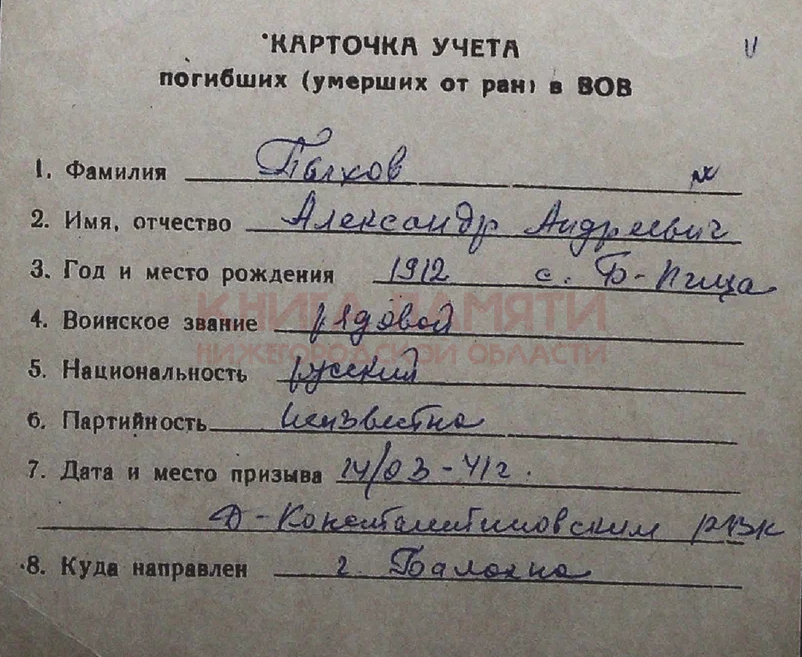 КАРТОЧКА УЧЕТА
погибших (умерших от ран) в ВОВ
1. Фамилия Пыхов
2. Имя, отчество Александр Андреевич
3. Год и место рождения 1912 с. Б-Пица
КНИГА ПАМЯТИ
4. Воинское звание рядовой
НИЖЕГОРОДСКОЙ ОБЛАСТИ
5. Национальность русский
6. Партийность неизвестна
7. Дата и место призыва 14/03-41г.
Д-Константиновским РВК
8. Куда направлен г. Балахна